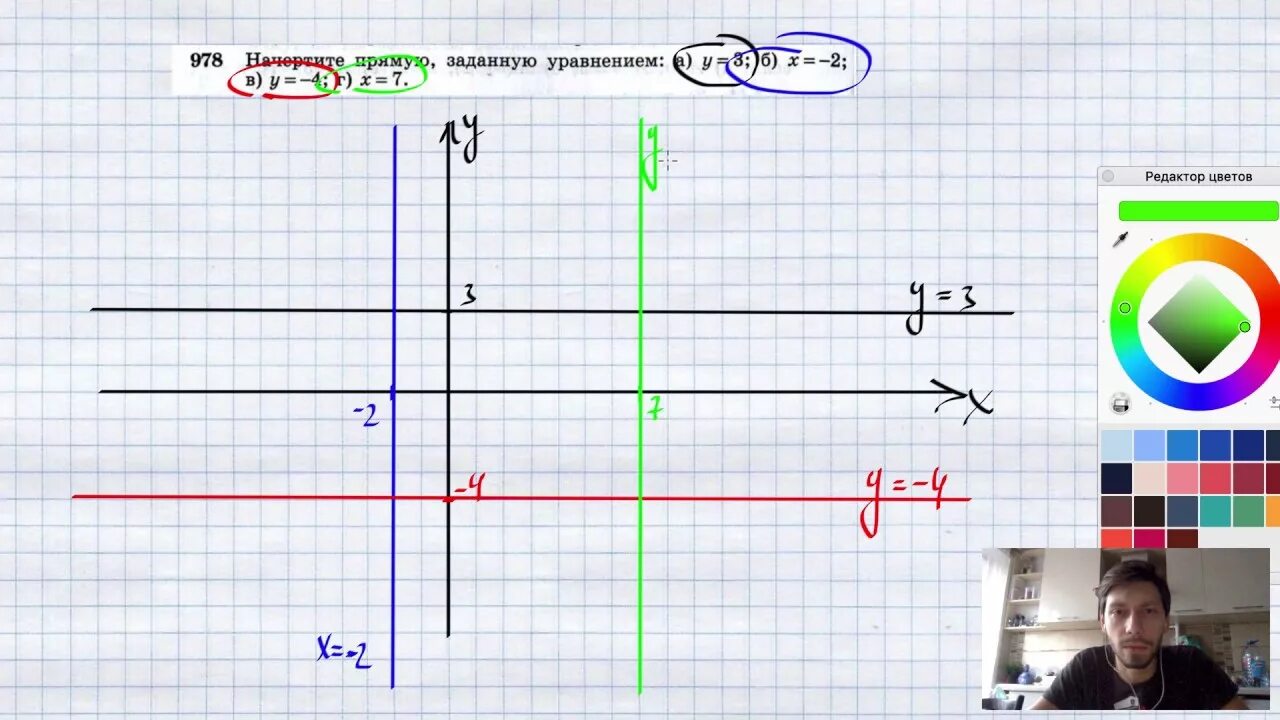 978 Начертите прямую, заданную уравнением: а) y = 3; б) x = −2;
в) y = −4; г) x = 7.
y
y
Редактор цветов
3
y = 3
x
-2
7
-4
y = -4
x = -2